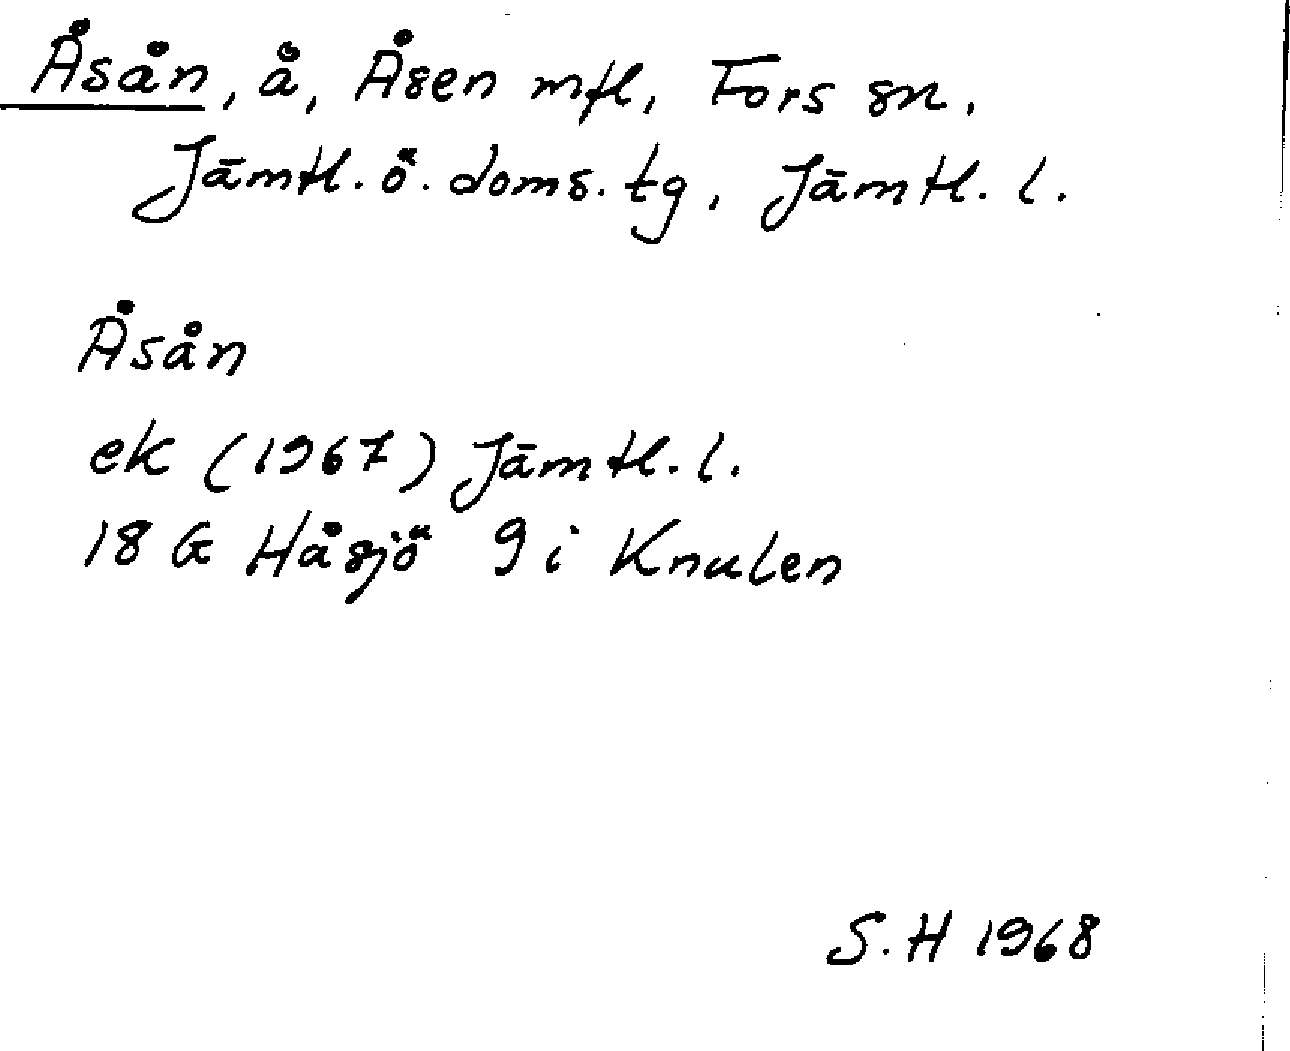 Åsån, å, Åsen mfl, Fors sn.
Jämtl. ö. doms. tg, Jämtl. l.
Åsån
ek (1967) Jämtl. l.
18 G Håsjö 9 i Knulen
S. H 1968